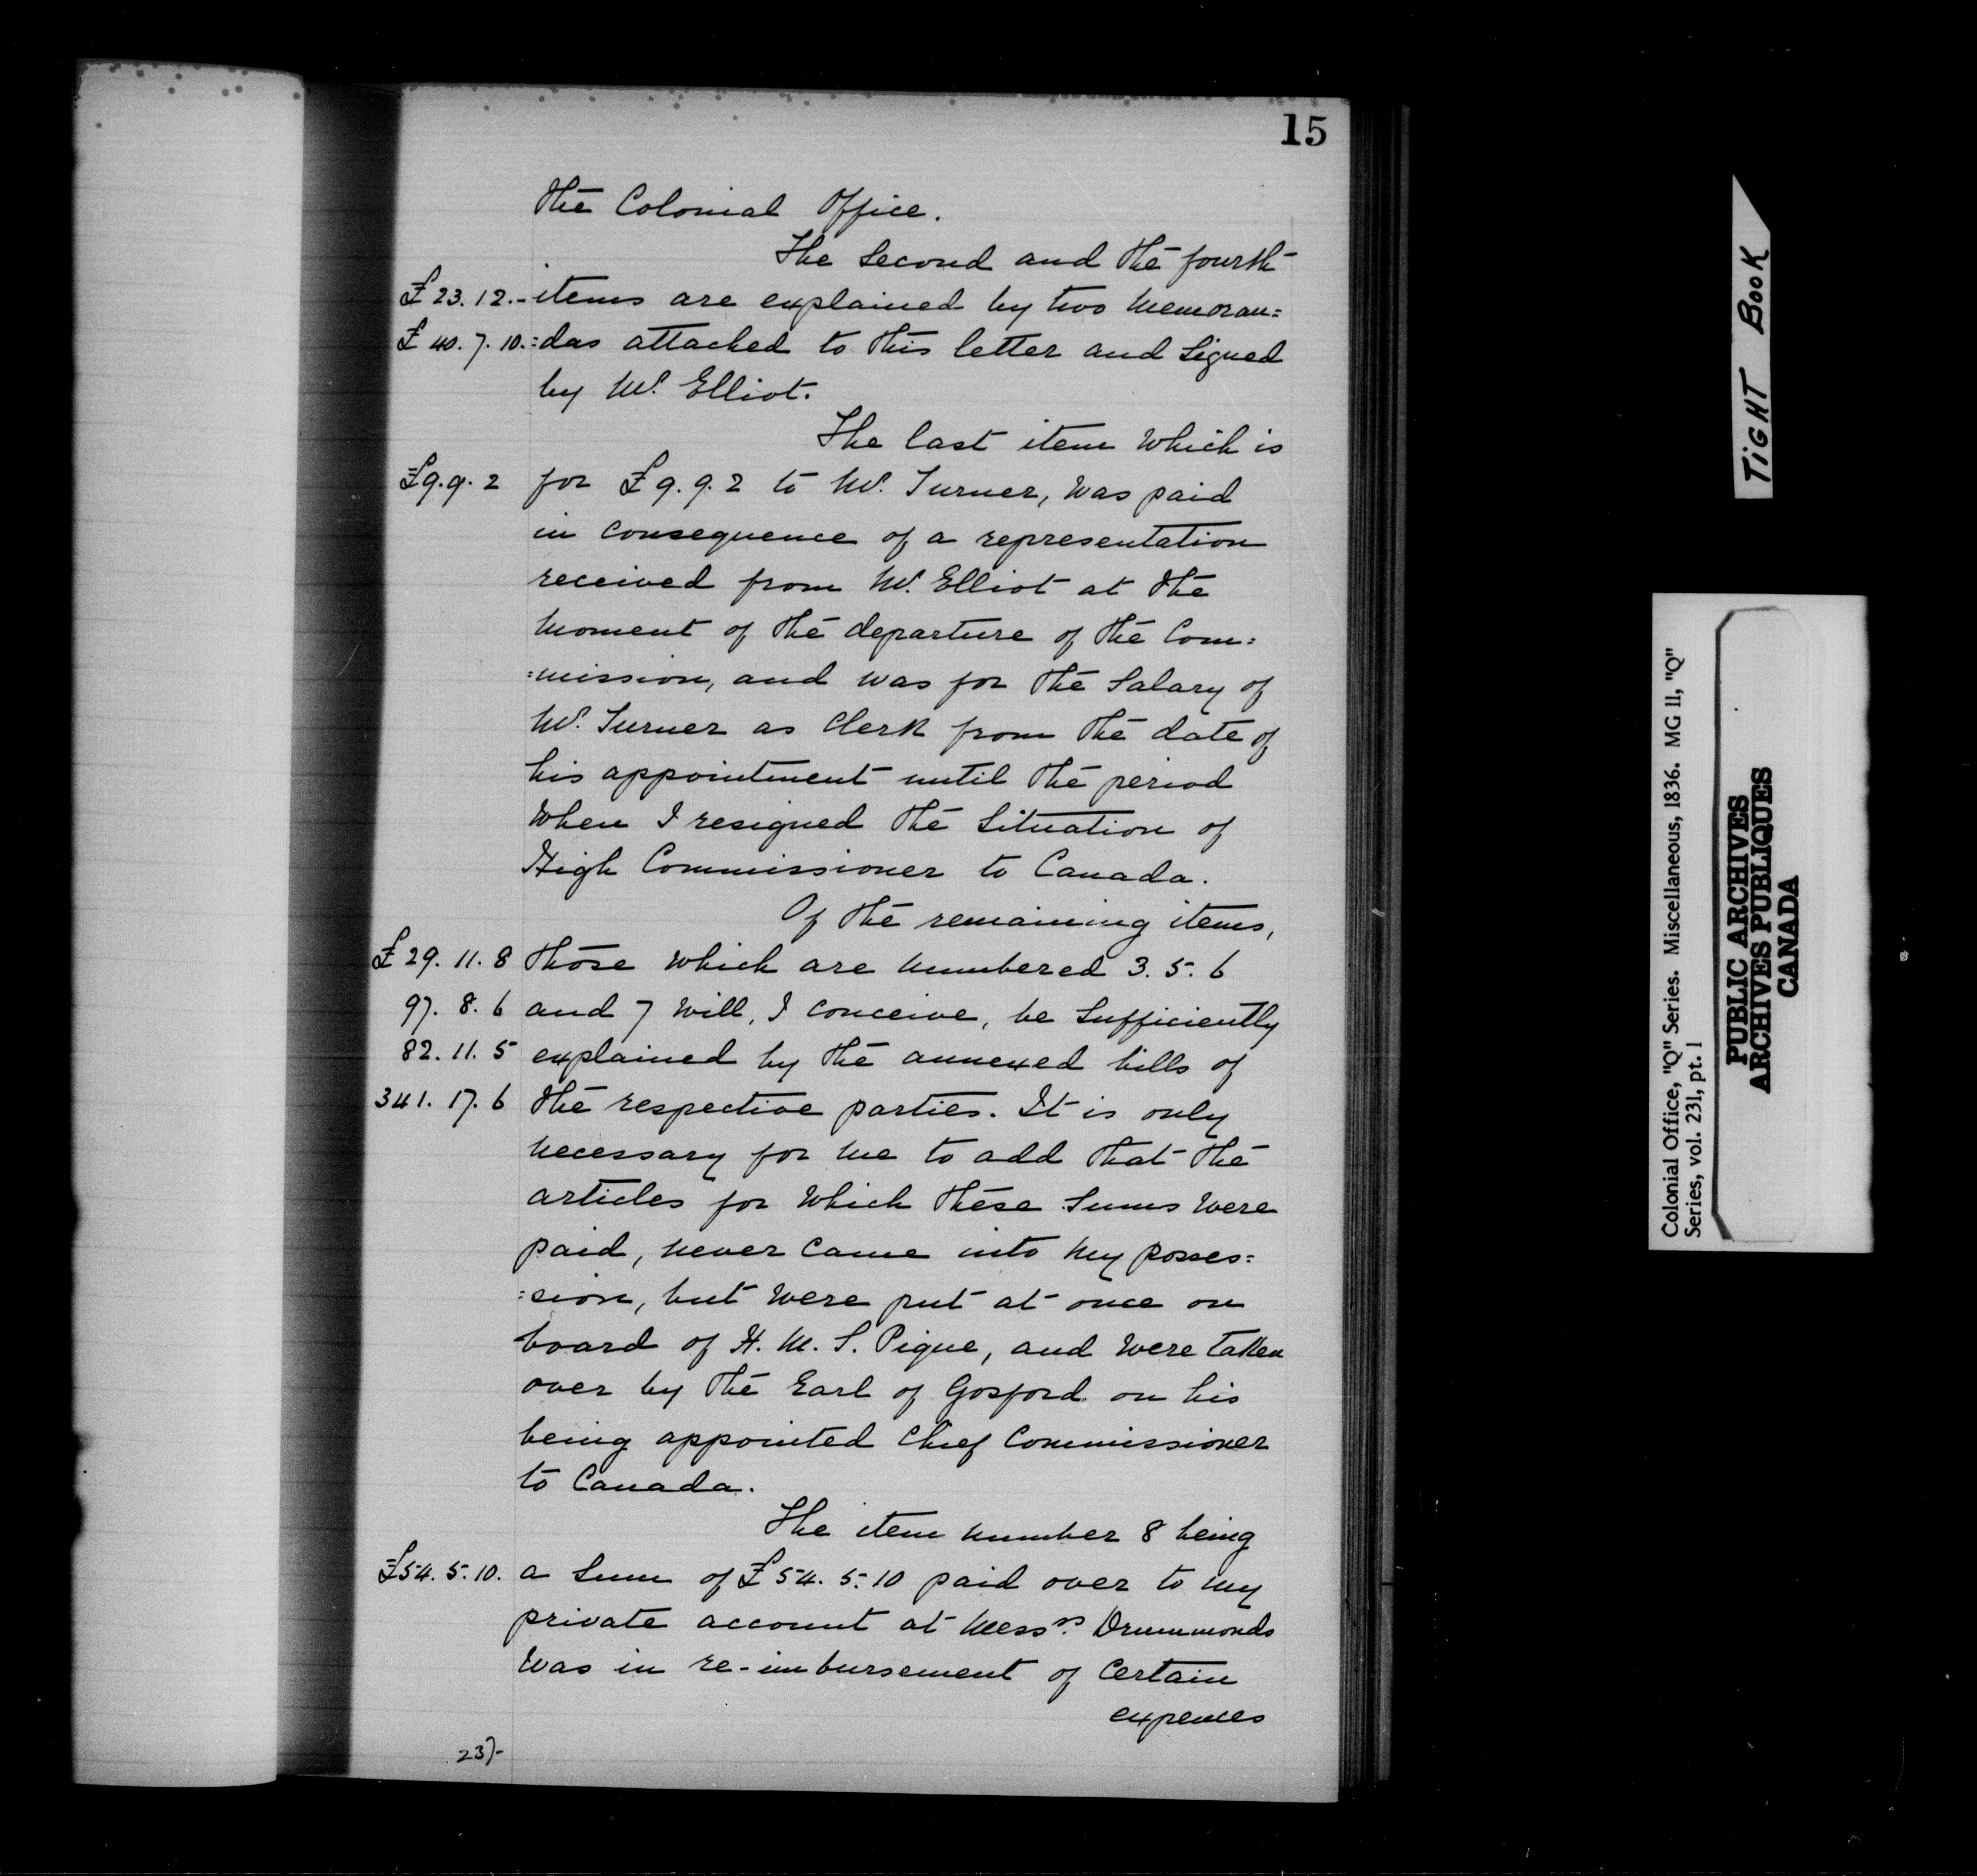 15
the Colonial Office.
The second and the fourth
£23.12.- items are explained by two memoran=
£40.7.10. =das attached to this letter and signed
by Mr. Elliot.
The last item which is
£9.9.2 for £9.9.2 to Mr. Turner, was paid
in consequence of a representation
received from Mr. Elliot at the
moment of the departure of the Com=
=mission, and was for the salary of
Mr. Turner as Clerk from the date of
his appointment until the period
when I resigned the situation of
High Commissioner to Canada.
Of the remaining items,
£29.11.8 those which are numbered 3.5.6
97.8.6 and 7 will, I conceive, be sufficiently
82.11.5 explained by the annexed bills of
341.17.6 the respective parties. It is only
necessary for me to add that the
articles for which these sums were
paid, never came into my posses=
=sion, but were put at once on
board of H.M.S. Pique, and were taken
over by the Earl of Gosford on his
being appointed Chief Commissioner
to Canada.
The item number 8 being
£54.5.10. a sum of £54.5.10 paid over to my
private account at Messrs. Drummonds
was in re-imbursement of certain
expenses
237-
TIGHT BOOK
Colonial Office, "Q" Series. Miscellaneous, 1836. MG 11, "Q"
Series, vol. 231, pt. 1
PUBLIC ARCHIVES
ARCHIVES PUBLIQUES
CANADA